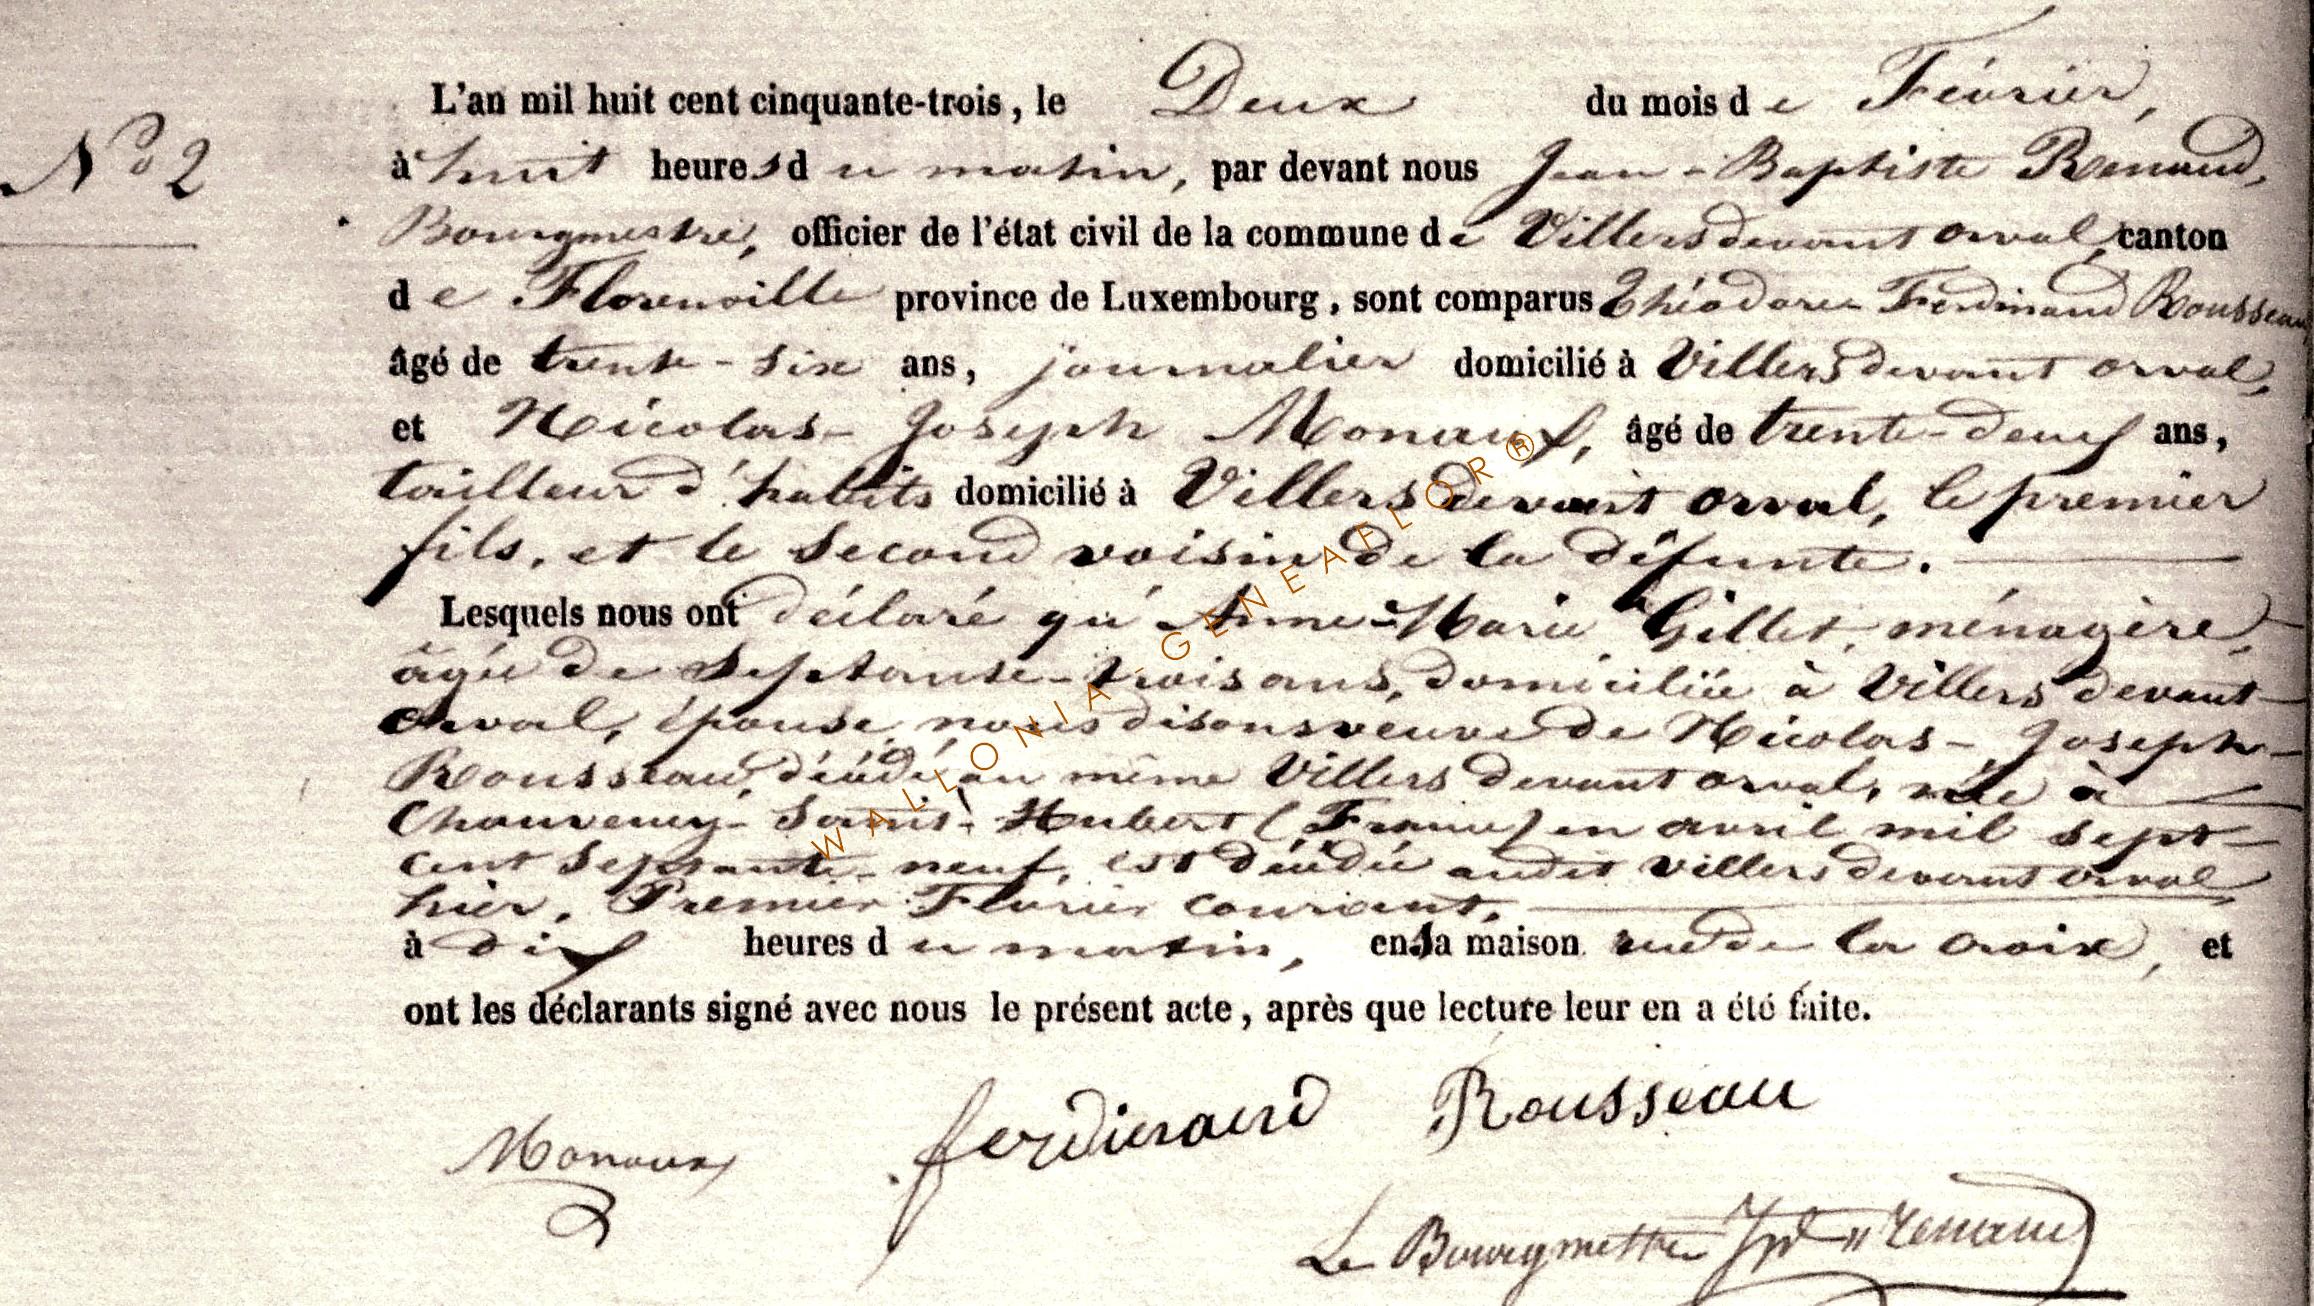 N° 2
L'an mil huit cent cinquante-trois, le Deux du mois de Février,
à huit heures du matin, par devant nous Jean-Baptiste Renaud,
Bourgmestre, officier de l'état civil de la commune de Villers devant orval, canton
de Florenville province de Luxembourg, sont comparus Théodore Ferdinand Rousseau
âgé de trente-six ans, journalier domicilié à Villers devant orval,
et Nicolas-Joseph Monaux, âgé de trente-deux ans,
tailleur d'habits domicilié à Villers devant orval, le premier
fils, et le second voisin de la défunte.
Lesquels nous ont déclaré qu'Anne-Marie Gillet, ménagère,
âgée de septante-trois ans, domiciliée à Villers devant
orval, épouse, nous disons veuve de Nicolas-Joseph
Rousseau, décédé au même Villers devant orval, née à
Chauvency-Saint-Hubert (France) en avril mil sept
cent septante-neuf, est décédée audit villers devant orval
hier, Premier Février courant,
à dix heures du matin, en sa maison rue de la croix, et
ont les déclarants signé avec nous le présent acte, après que lecture leur en a été faite.
ferdinand Rousseau
Monaux
Le Bourgmestre Jn Bte Renaud
WALLONIA-GENEAFLOR®